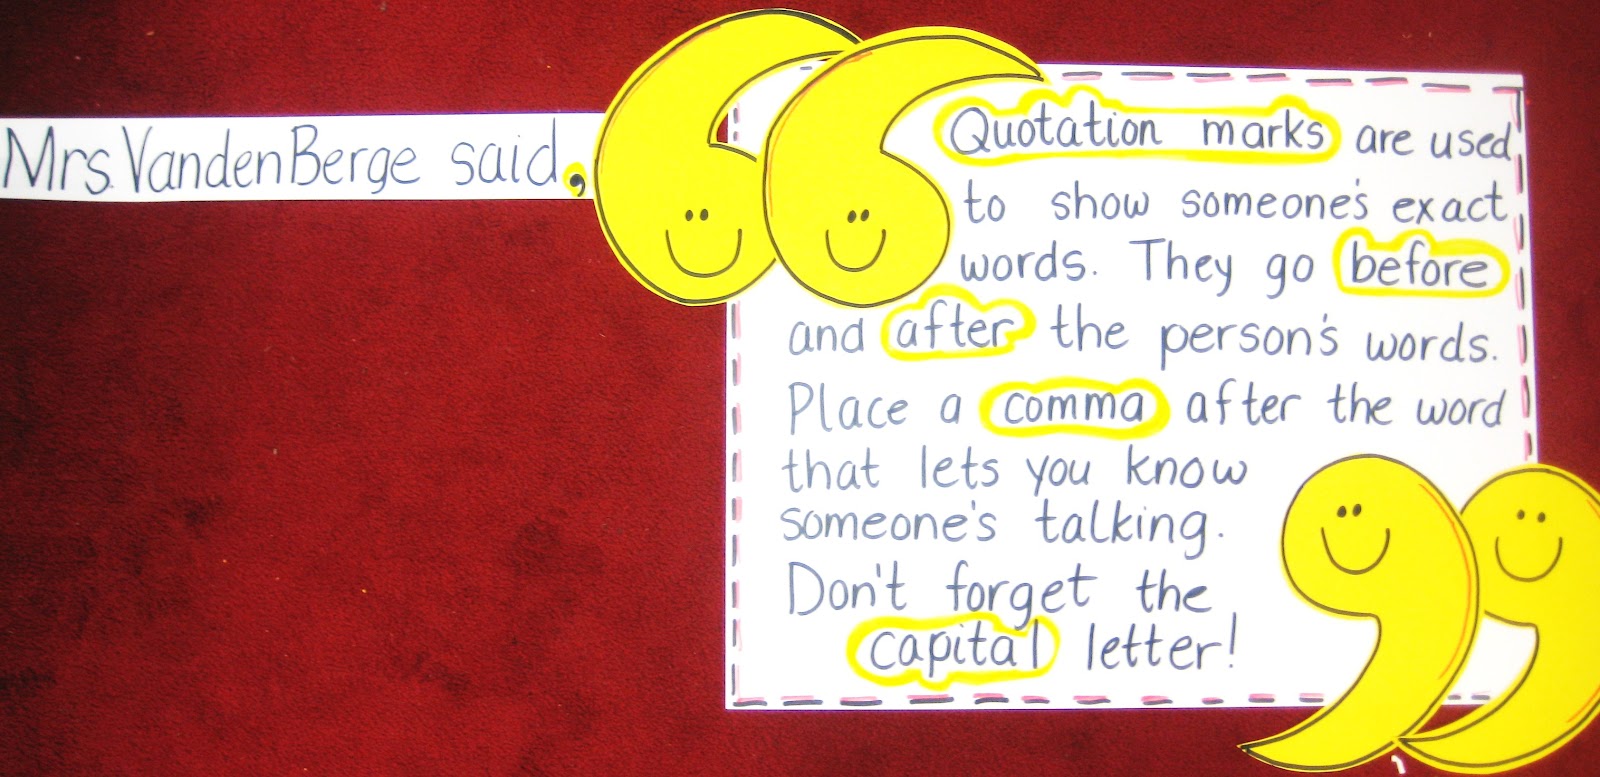 Mrs. VandenBerge said,
Quotation marks are used
to show someone's exact
words. They go before
and after the person's words.
Place a comma after the word
that lets you know
someone's talking.
Don't forget the
capital letter!